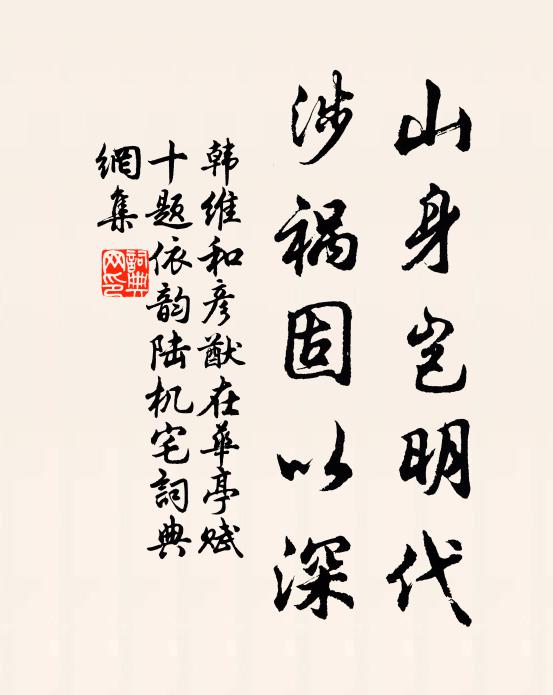 山身岂明代
涉祸固以深
韩维和彦猷在華亭赋
十题依韵陆机宅詞典
網集
詞典网印